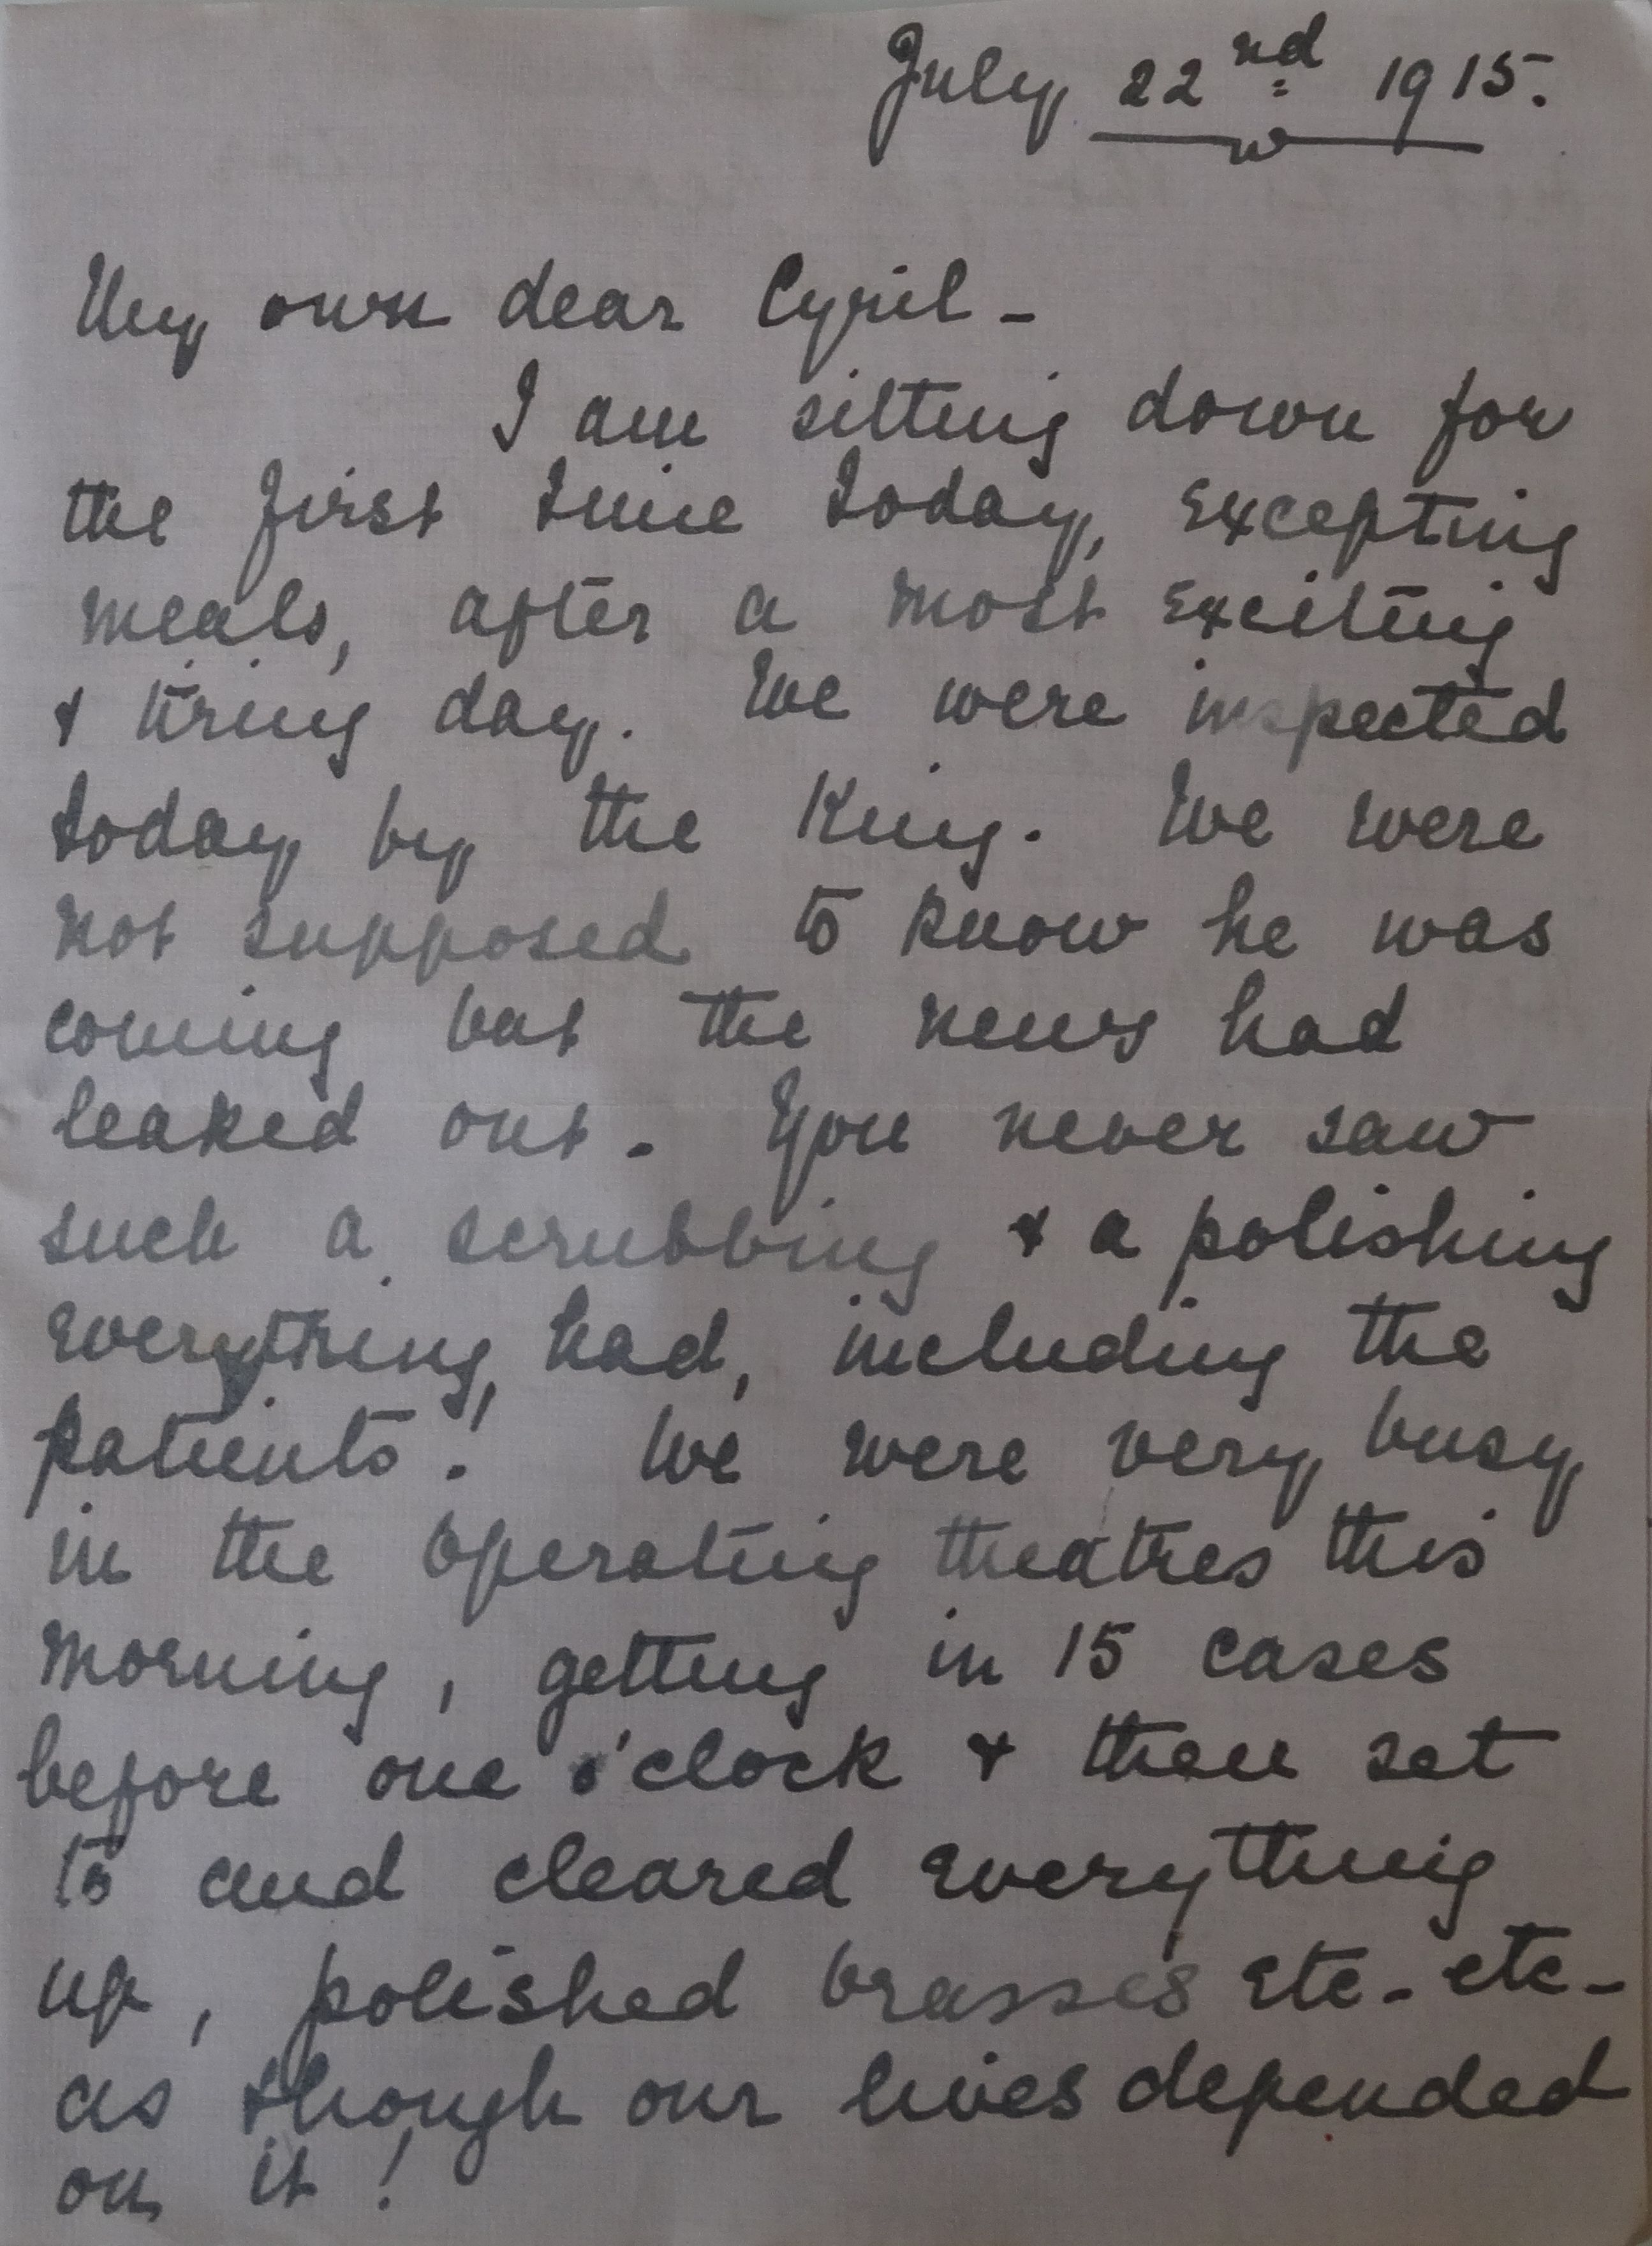 July 22nd 1915.
My own dear Cyril -
I am sitting down for
the first time today, excepting
meals, after a most exciting
& tiring day. We were inspected
today by the King. We were
not supposed to know he was
coming but the news had
leaked out. You never saw
such a scrubbing & a polishing
everything had, including the
patients! We were very busy
in the operating theatres this
morning, getting in 15 cases
before one o'clock & then set
to and cleared everything
up, polished brasses etc. etc.
as though our lives depended
on it!